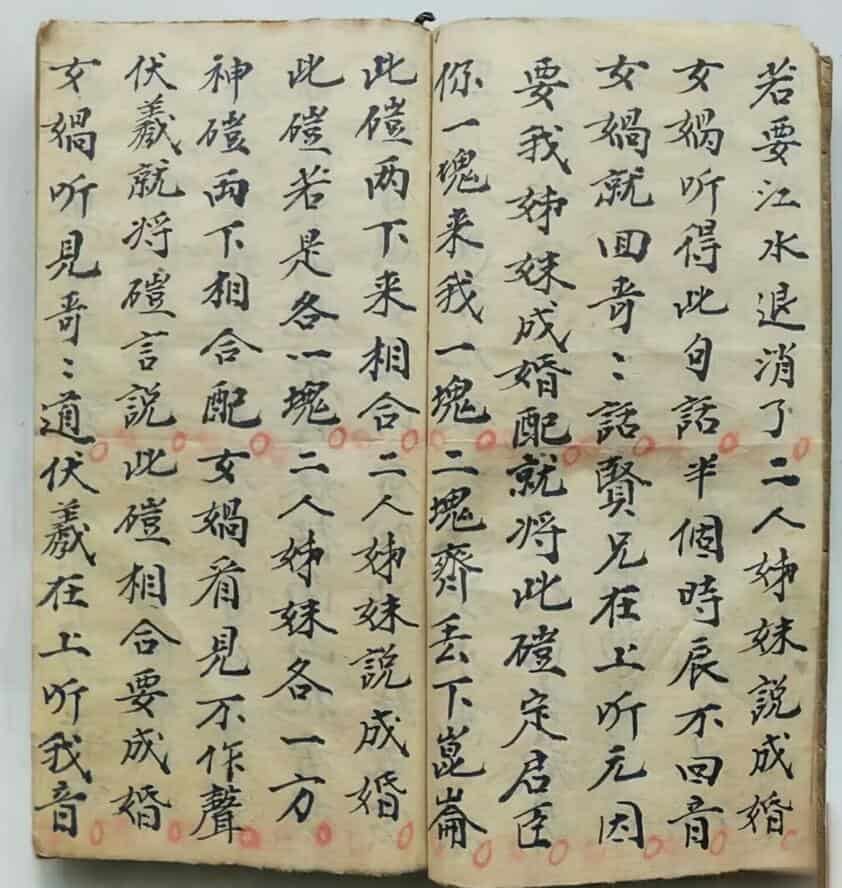 若要江水退消了二人姊妹説成婚
女媧听得此句話半個時辰不回音
女媧就回哥〻話賢兄在上听元因
要我姊妹成婚配就将此磑定君臣
你一塊来我一塊二塊齊丢下崑崙
此磑两下来相合二人姊妹説成婚
此磑若是各一塊二人姊妹各一方
神磑两下相合配女媧看見不作聲
伏羲就将磑言説此磑相合要成婚
女媧听見哥〻道伏羲在上听我音